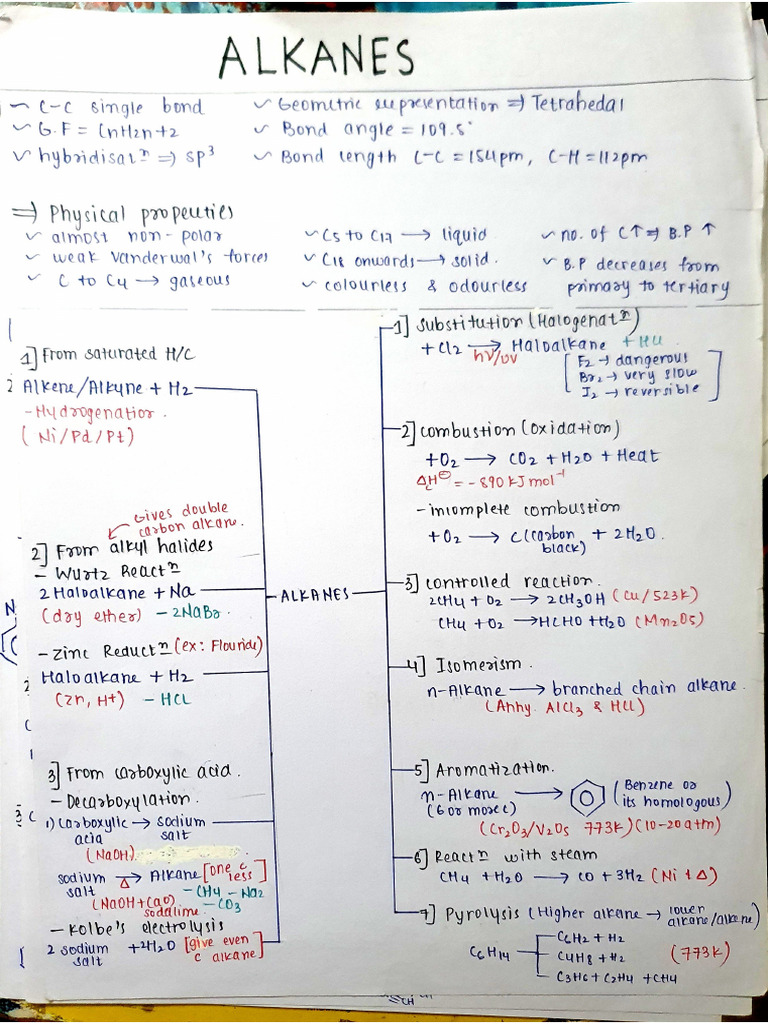 ALKANES
C-C single bond
G.F = CnH2n+2
hybridisatⁿ ⇒ sp³
Geometric representation ⇒ Tetrahedal
Bond angle = 109.5°
Bond length C-C = 154pm, C-H = 112pm
⇒ Physical properties
almost non-polar
weak vanderwal's forces
C to C4 → gaseous
C5 to C17 → liquid
C18 onwards → solid.
colourless & odourless
no. of C↑ ⇒ B.P ↑
B.P decreases from
primary to tertiary
1] From saturated H/C
Alkene/Alkyne + H2
- Hydrogenation.
(Ni/Pd/Pt)
Gives double
carbon alkane.
2] From alkyl halides
- Wurtz Reactⁿ
2 Haloalkane + Na
(dry ether) - 2NaBr.
- Zinc Reductⁿ (ex: Flouride)
Haloalkane + H2
(Zn, H+) - HCl
3] From carboxylic acid.
- Decarboxylation.
1) carboxylic → sodium
acia salt
(NaOH)
sodium → Alkane [one c
salt Δ less]
- CH4 - Na2
(NaOH + CaO) - CO3
sodalime.
- Kolbe's electrolysis
2 sodium + 2H2O [give even
salt c alkane]
ALKANES
1] Substitution (Halogenatⁿ)
+ Cl2 → Haloalkane + HCl
hν/UV
F2 → dangerous
Br2 → very slow
I2 → reversible
2] combustion (oxidation)
+O2 → CO2 + H2O + Heat
ΔcH⊖ = - 890 kJ mol⁻¹
- incomplete combustion
+O2 → C (carbon + 2H2O.
black)
3] controlled reaction.
2CH4 + O2 → 2CH3OH (Cu/523K)
CH4 + O2 → HCHO + H2O (Mn2O5)
4] Isomerism.
n-Alkane → branched chain alkane.
(Anhy. AlCl3 & HCl)
5] Aromatization.
n-Alkane → (Benzene or
(6 or more c) its homologous)
(Cr2O3/V2O5 773K) (10-20atm)
6] Reactⁿ with steam
CH4 + H2O → CO + 3H2 (Ni + Δ)
7] Pyrolysis (Higher alkane → lower
alkane/alkene)
C6H14
C6H12 + H2
C4H8 + H2
C3H6 + C2H4 + CH4
(773K)